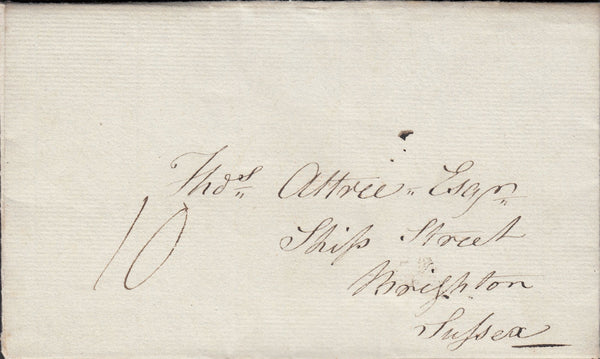 Thos. Attree Esqr.
10
Ship Street
Brighton
Sussex